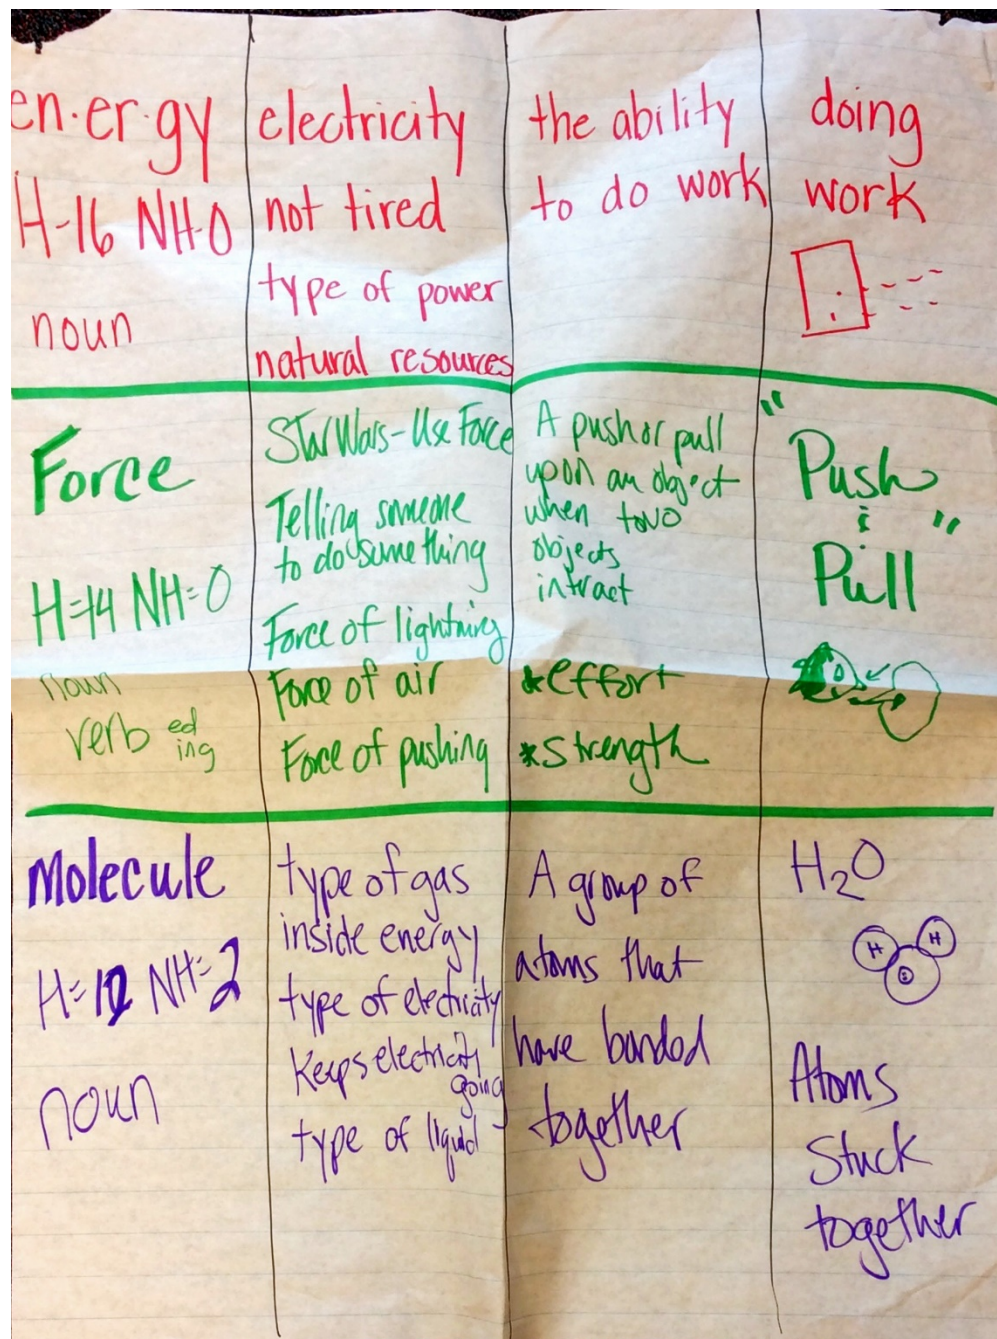 en·er·gy
H-16 NH-0
noun
electricity
not tired
type of power
natural resources
the ability
to do work
doing
work
Force
H=14 NH=0
noun
verb ed
ing
Star Wars - Use Force
Telling someone
to do something
Force of lightning
Force of air
Force of pushing
A push or pull
upon an object
when two
objects
intract
*effort
*strength
"Push
&
Pull"
Molecule
H=12 NH=2
noun
type of gas
inside energy
type of electricity
Keeps electricity
going
type of liquid
A group of
atoms that
have bonded
together
H₂O
H H
Atoms
Stuck
together